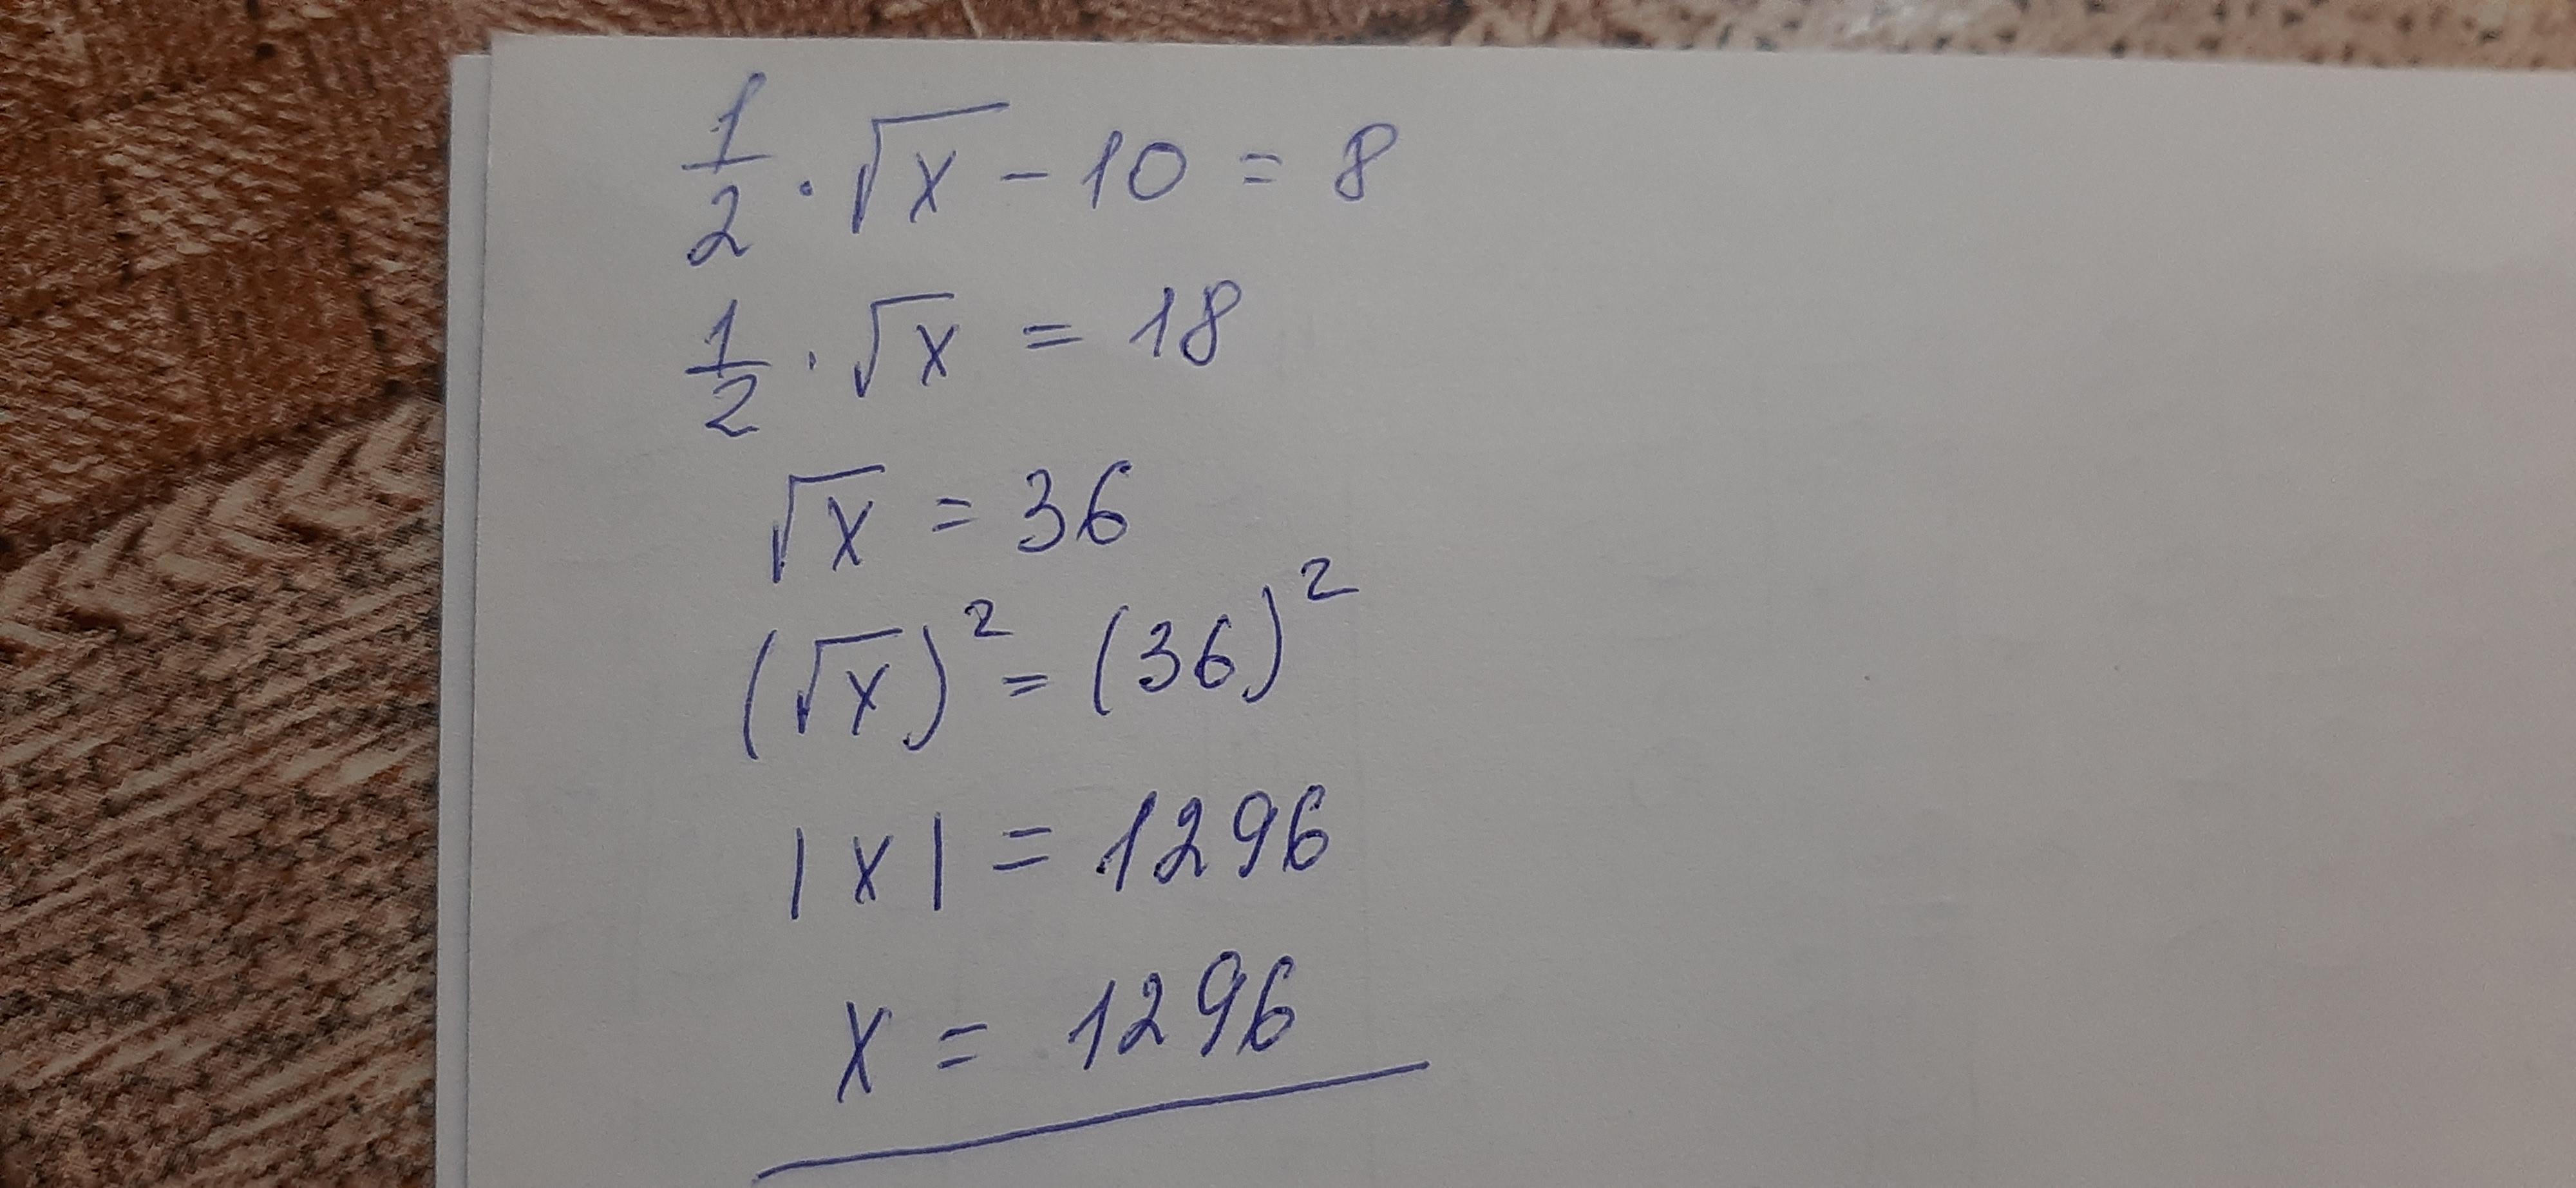 1/2 · √x - 10 = 8
1/2 · √x = 18
√x = 36
(√x)² = (36)²
|x| = 1296
x = 1296